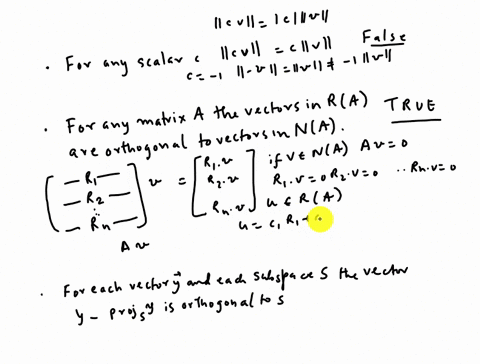 ||cv|| = |c| ||v||
• For any scalar c ||cv|| = c||v|| False
c=-1 ||-v|| = ||v|| ≠ -1 ||v||
• For any matrix A the vectors in R(A) TRUE
are orthogonal to vectors in N(A).
R1 v = R1.v if v ∈ N(A) Av=0
R2 R2.v R1.v=0 R2.v=0 .. Rn.v=0
: Rn.v u ∈ R(A)
Rn u = c, R1 +
Av
• For each vector y and each subspace S the vector
y - projs y is orthogonal to s